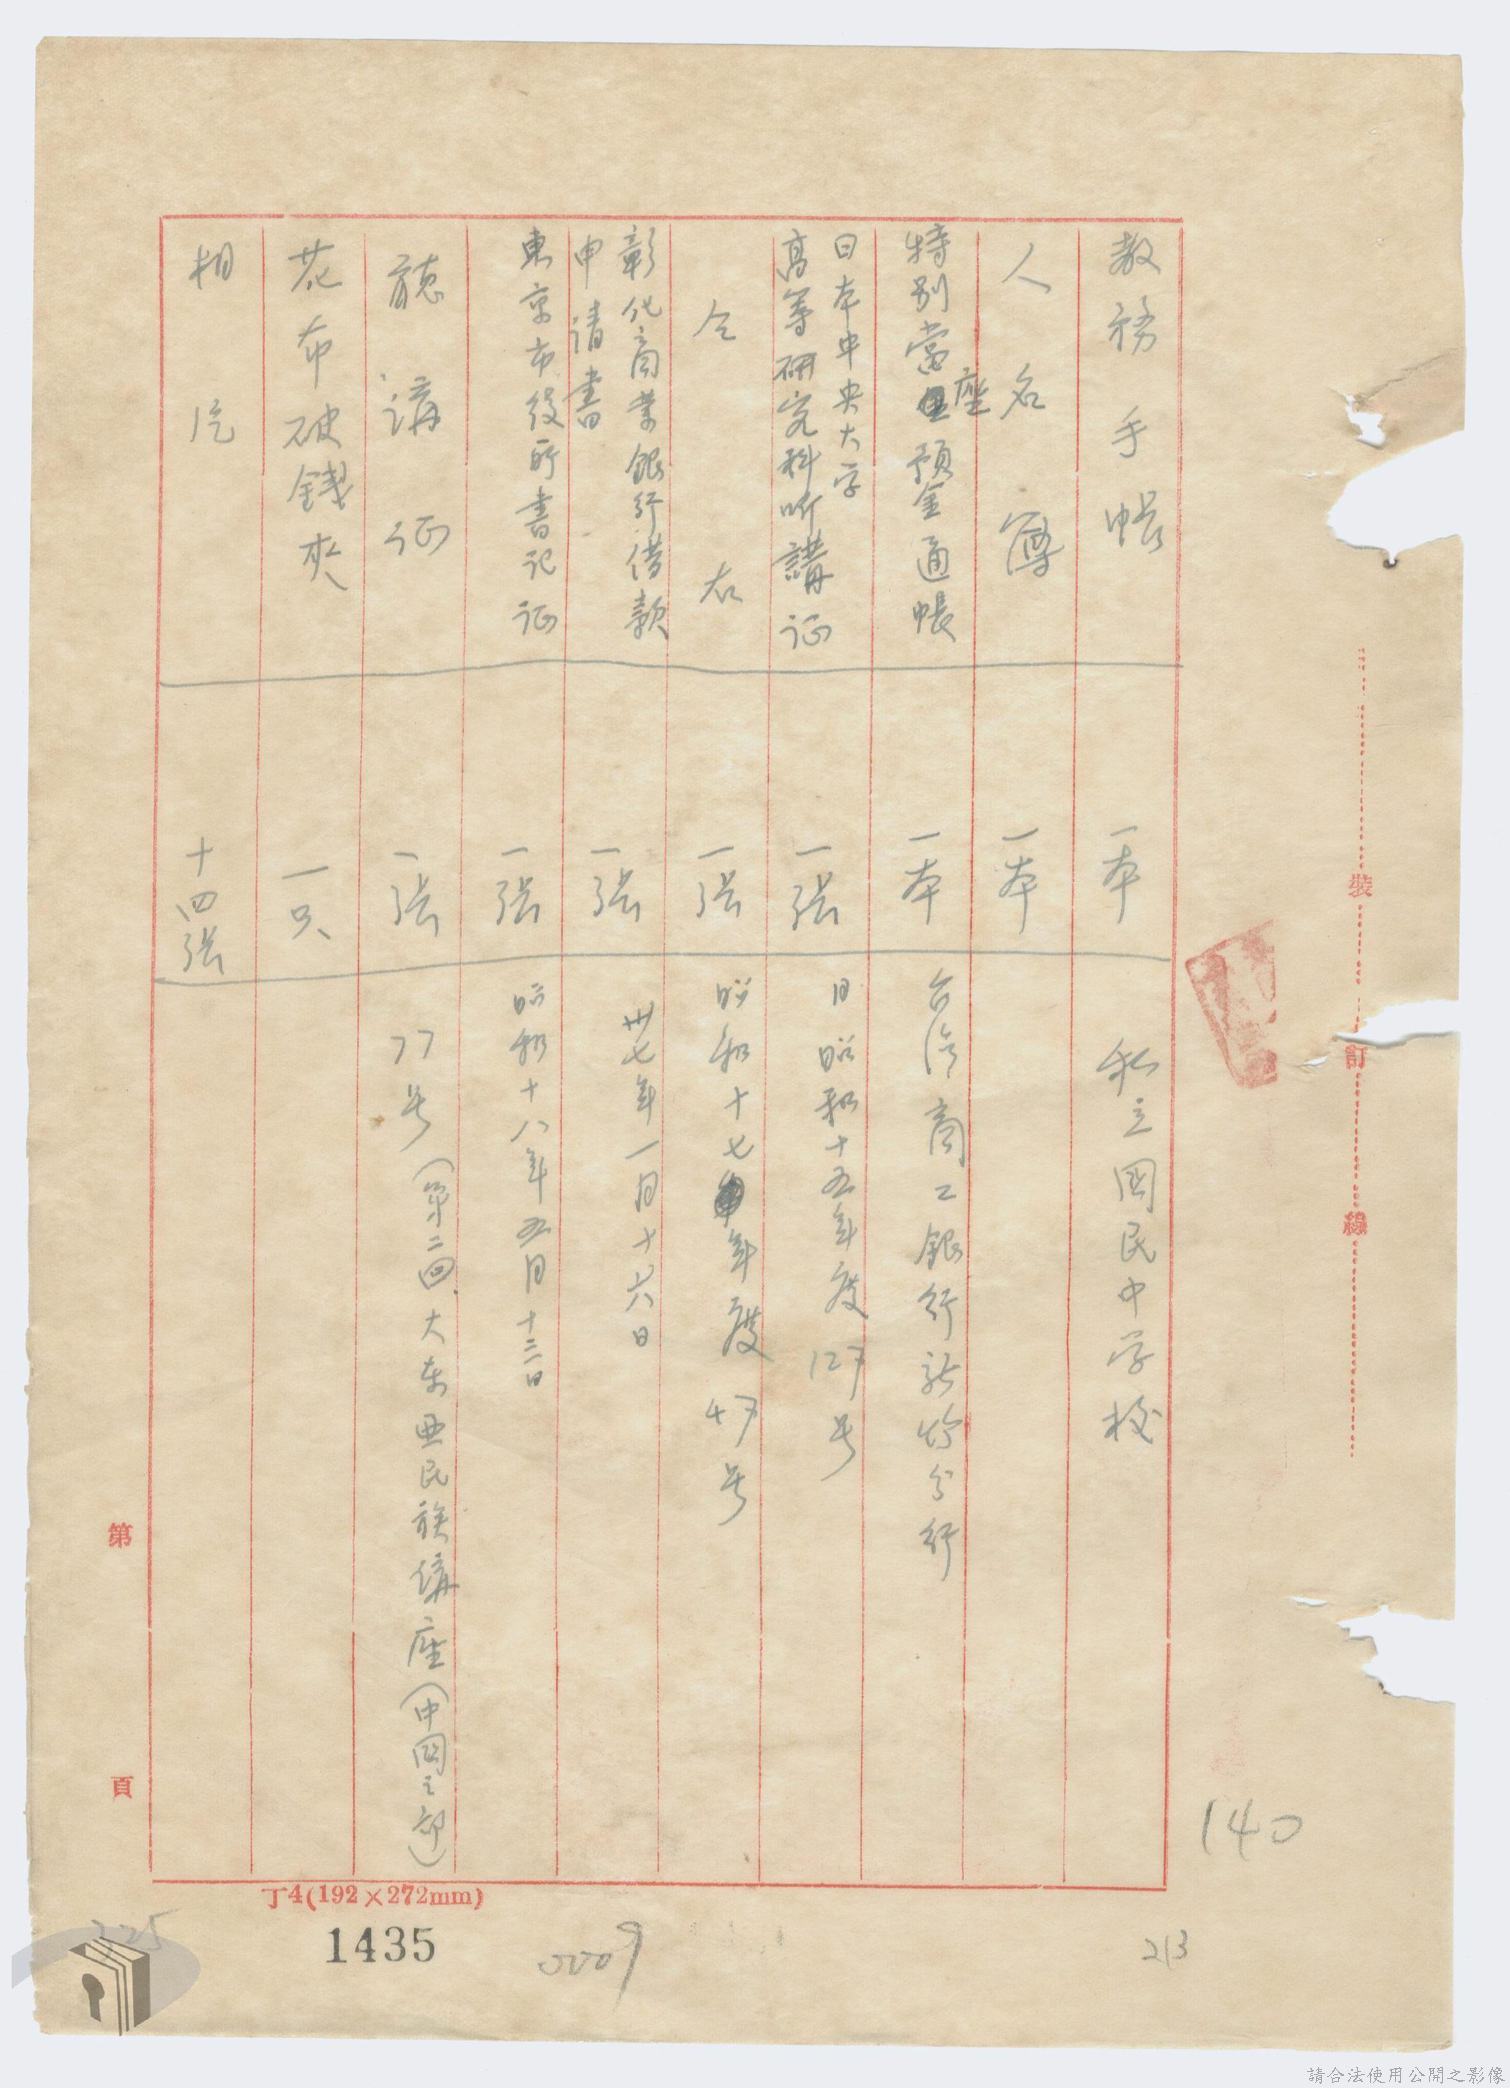 教務手帳 一本 私立國民中学校
人名簿 一本
特別當座預金通帳 一本 台湾商工銀行新竹分行
日本中央大学
高等研究科听講证 一张 日昭和十五年度127号
仝右 一张 昭和十七年度47号
彰化商業銀行借款
申请書 一张 卅七年一月十六日
東京市役所書记证 一张 昭和十八年五月十三日
聽講证 一张 77号(第二回大东亜民族講座(中国之部)
花布破錢夾 一只
相片 十四张
裝訂線
第 頁
丁4(192×272mm)
1435
0009
213
140
225
請合法使用公開之影像